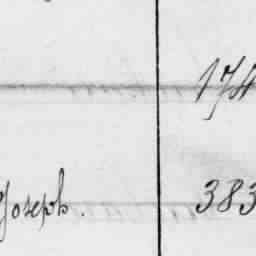 174
Joseph. 383